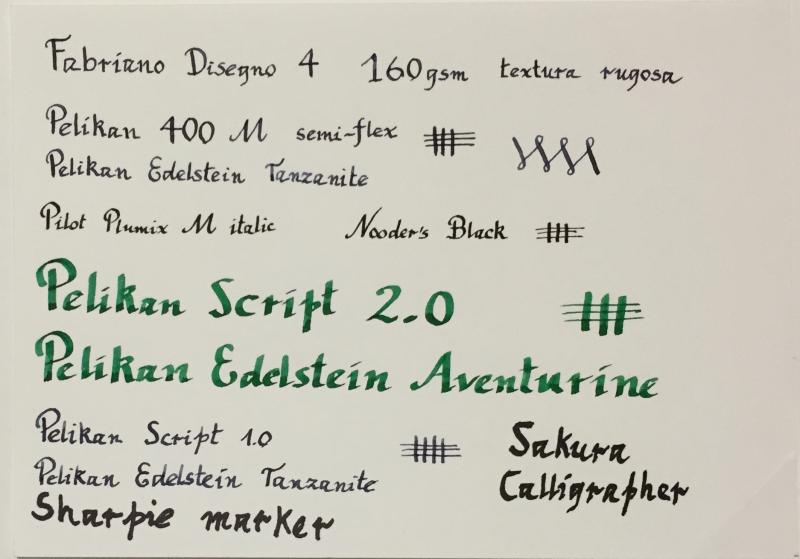 Fabriano Disegno 4 160gsm textura rugosa
Pelikan 400 M semi-flex
Pelikan Edelstein Tanzanite
Pilot Plumix M italic Nooder's Black
Pelikan Script 2.0
Pelikan Edelstein Aventurine
Pelikan Script 1.0
Pelikan Edelstein Tanzanite
Sharpie marker
Sakura
Calligrapher